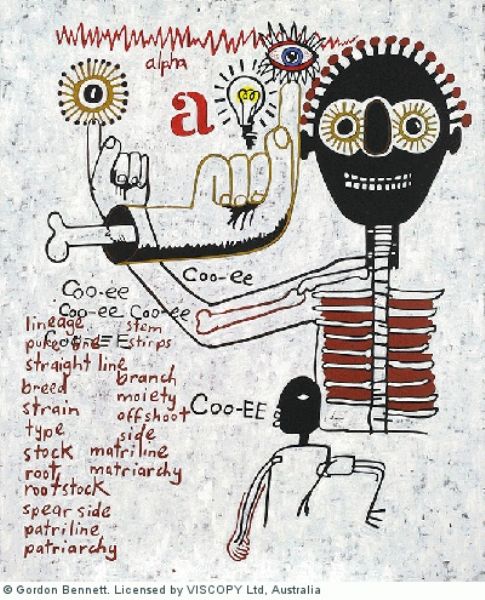 alpha
a
Coo-ee
Coo-ee
Coo-ee Coo-ee
Coo-EE
lineage
stem
line
stirps
straight line
breed
branch
strain
moiety
type
offshoot
Coo-EE
side
stock
matriline
root
matriarchy
rootstock
spear side
patriline
patriarchy
© Gordon Bennett. Licensed by VISCOPY Ltd, Australia